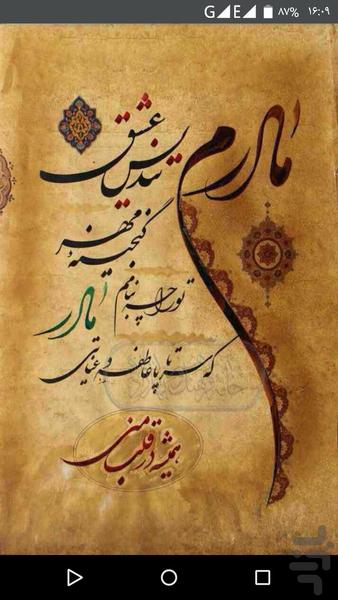 G E ۸۷% ۱۶:۰۹
مادرم
تندیس عشق
گنجینه مهر
تو را چه بنامم
مادر
که سرتاپا عاطفه و عنایتی
همیشه در قلب منی
بازار